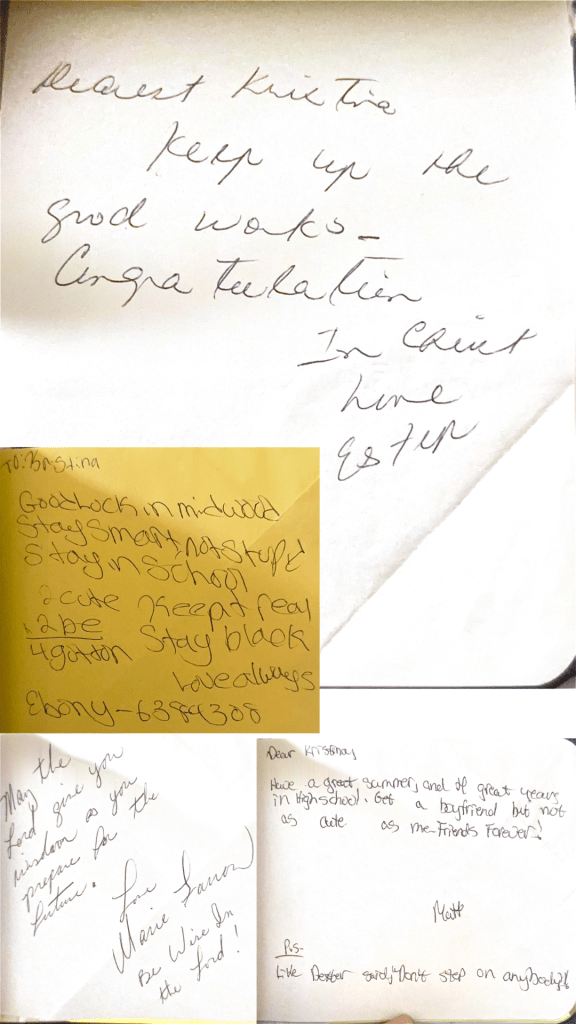 Dearest Kristina
Keep up the
good works-
Congratulation
In Christ
Love
Ester
To: Kristina
Good Luck in midwood
Stay Smart, not Stupid
Stay in School
2 cute Keep it real
2 be Stay black
4 gotton
Love always
Ebony-6384308
May the
Lord give you
wisdom as you
prepare for the
future.
Love
Marie
Be Wise In
the Lord!
Dear Kristina,
Have a great summer, and 4 great years
in High school. Get a boyfriend but not
as cute as me-Friends Forever!
Matt
P.s.-
Like Dexter said, "Don't step on anybody"!